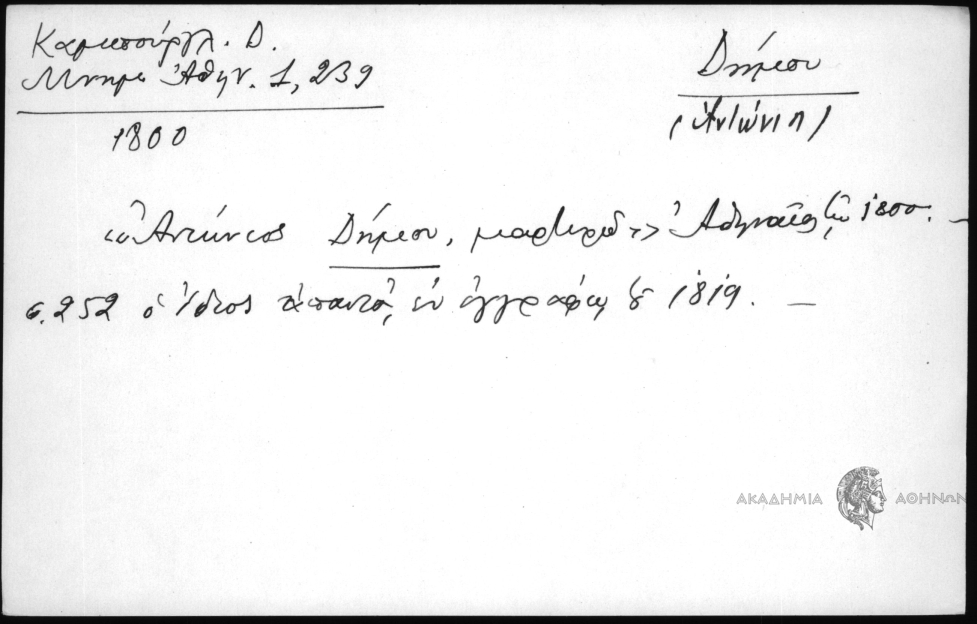 Καμπούργλ. Δ.
Μνημ. Ἀθην. 1, 239
1800
Δήμου
(Ἀντώνιος)
«ὁ Ἀντώνιος Δήμου, μαρτυρῶ» Ἀθηναῖος τῷ 1800. —
σ. 252 ὁ ἴδιος ἀπαντᾷ ἐν ἐγγράφῳ τοῦ 1819. —
ΑΚΑΔΗΜΙΑ ΑΘΗΝΩΝ